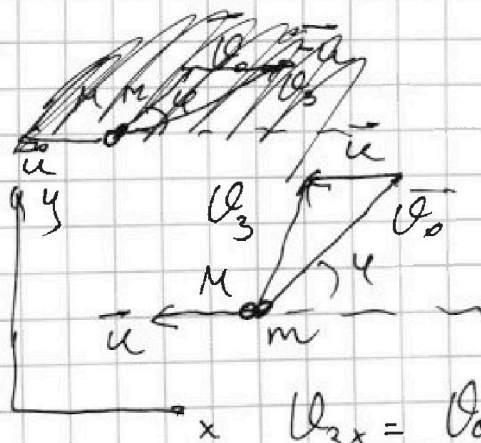 u⃗
y
u⃗
ϑ₃
ϑ⃗₀
M
φ
u⃗
m
x
ϑ₃ₓ = ϑ₀